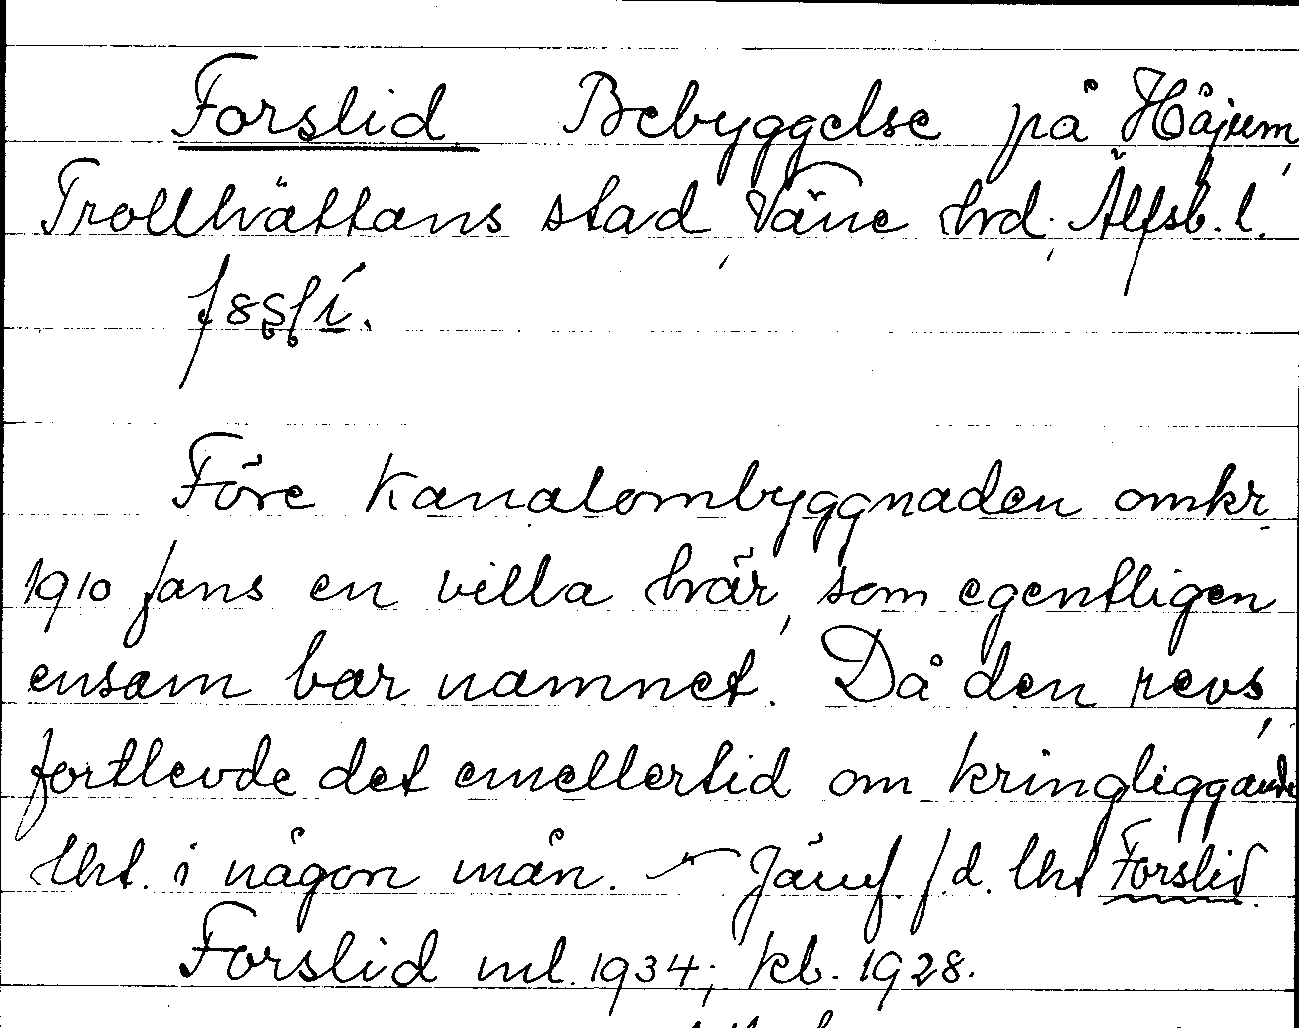 Forslid Bebyggelse på Håjum,
Trollhättans stad, Väne hrd, Älfsb. l.
Före kanalombyggnaden omkr.
1910 fans en villa här, som egentligen
ensam bar namnet. Då den revs,
fortlevde det emellertid om kringliggande
lht. i någon mån. – Jämf. f.d. lht Forslid.
Forslid ml. 1934; kb. 1928.